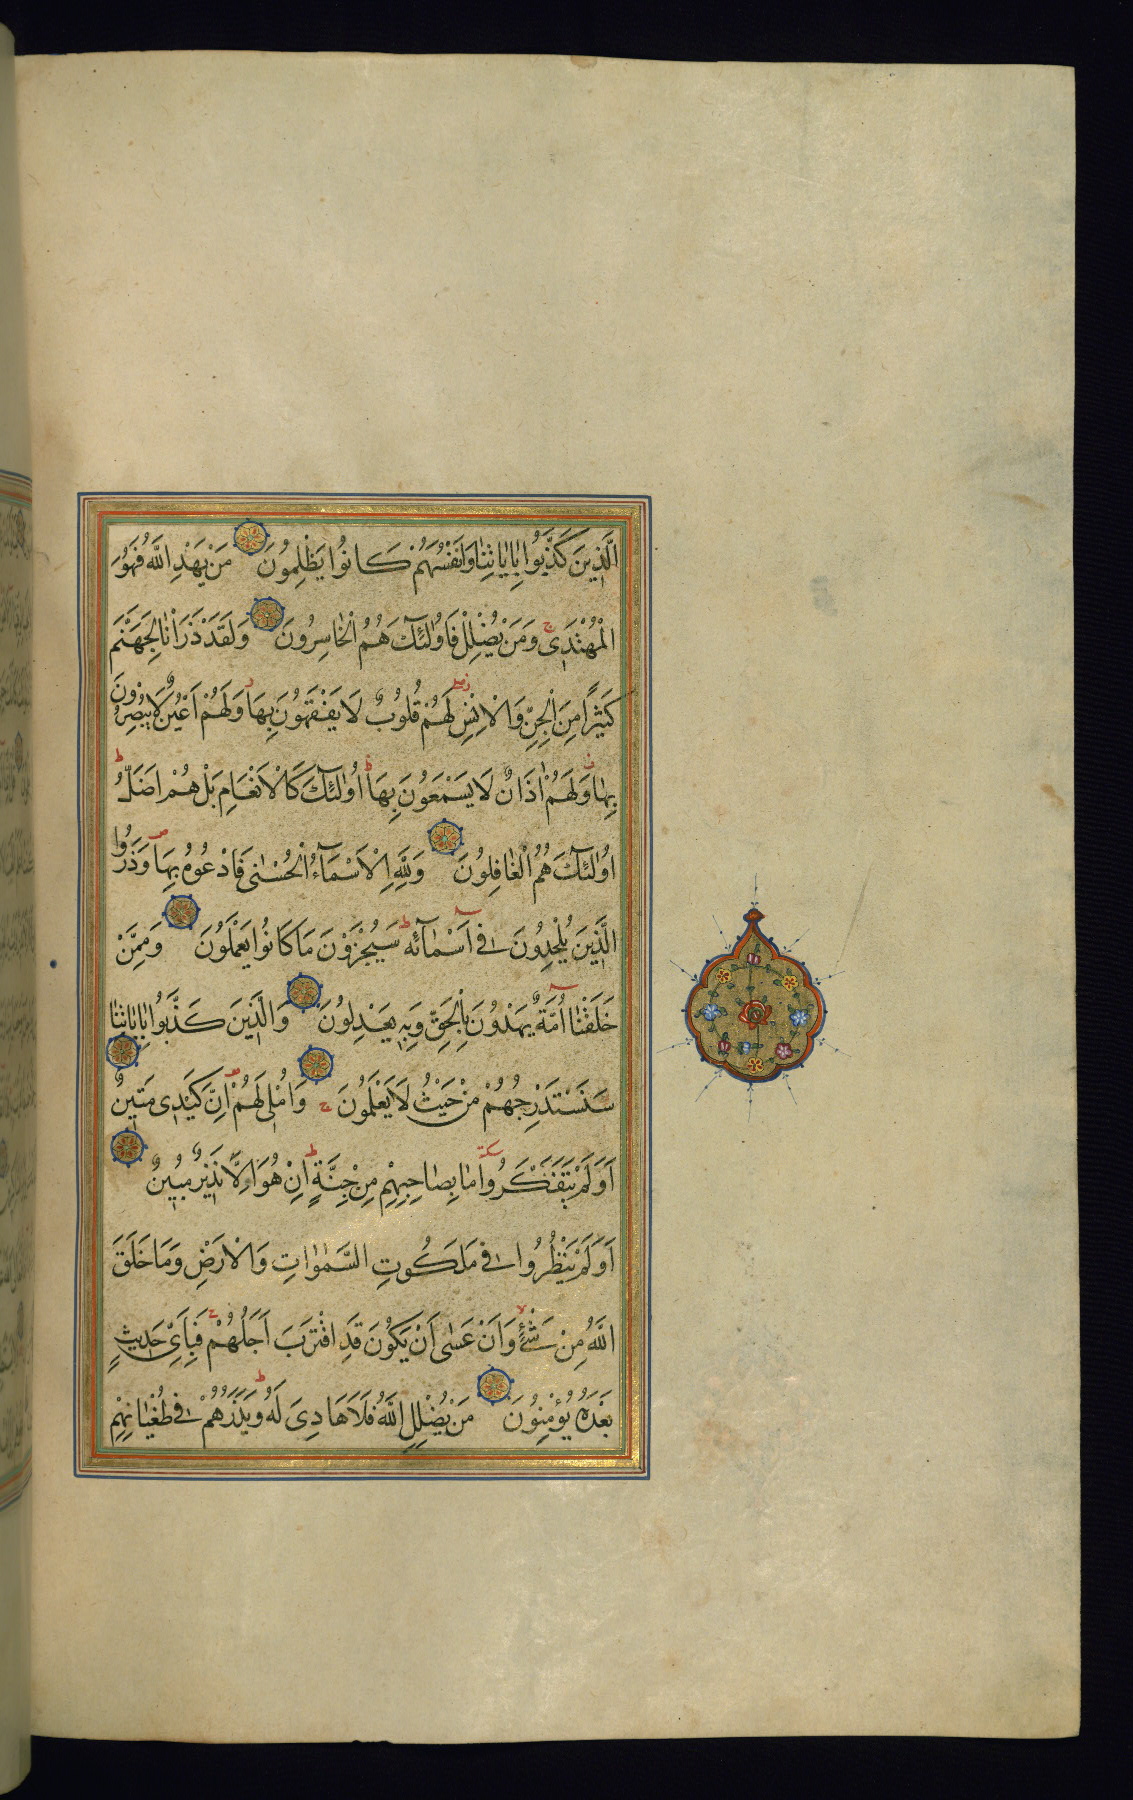 الَّذِينَ كَذَّبُوا بِاٰيَاتِنَا وَاَنْفُسَهُمْ كَانُوا يَظْلِمُونَ مَنْ يَهْدِ اللّٰهُ فَهُوَ
الْمُهْتَدِى ج وَمَنْ يُضْلِلْ فَاُولٰئِكَ هُمُ الْخَاسِرُونَ وَلَقَدْ ذَرَاْنَا لِجَهَنَّمَ
كَثِيرًا مِنَ الْجِنِّ وَالْاِنْسِ لَهُمْ قُلُوبٌ لَا يَفْقَهُونَ بِهَا وَلَهُمْ اَعْيُنٌ لَا يُبْصِرُونَ
بِهَا وَلَهُمْ اٰذَانٌ لَا يَسْمَعُونَ بِهَا ط اُولٰئِكَ كَالْاَنْعَامِ بَلْ هُمْ اَضَلُّ ط
اُولٰئِكَ هُمُ الْغَافِلُونَ وَلِلّٰهِ الْاَسْمَاءُ الْحُسْنٰى فَادْعُوهُ بِهَا وَذَرُوا
الَّذِينَ يُلْحِدُونَ فِى اَسْمَائِهِ ط سَيُجْزَوْنَ مَا كَانُوا يَعْمَلُونَ وَمِمَّنْ
خَلَقْنَا اُمَّةٌ يَهْدُونَ بِالْحَقِّ وَبِهِ يَعْدِلُونَ وَالَّذِينَ كَذَّبُوا بِاٰيَاتِنَا
سَنَسْتَدْرِجُهُمْ مِنْ حَيْثُ لَا يَعْلَمُونَ ج وَاُمْلِى لَهُمْ اِنَّ كَيْدِى مَتِينٌ
اَوَلَمْ يَتَفَكَّرُوا سكتة مَا بِصَاحِبِهِمْ مِنْ جِنَّةٍ ط اِنْ هُوَ اِلَّا نَذِيرٌ مُبِينٌ
اَوَلَمْ يَنْظُرُوا فِى مَلَكُوتِ السَّمٰوَاتِ وَالْاَرْضِ وَمَا خَلَقَ
اللّٰهُ مِنْ شَىْءٍ لا وَاَنْ عَسٰى اَنْ يَكُونَ قَدِ اقْتَرَبَ اَجَلُهُمْ ج فَبِاَىِّ حَدِيثٍ
بَعْدَهُ يُؤْمِنُونَ مَنْ يُضْلِلِ اللّٰهُ فَلَا هَادِىَ لَهُ ط وَيَذَرُهُمْ فِى طُغْيَانِهِمْ